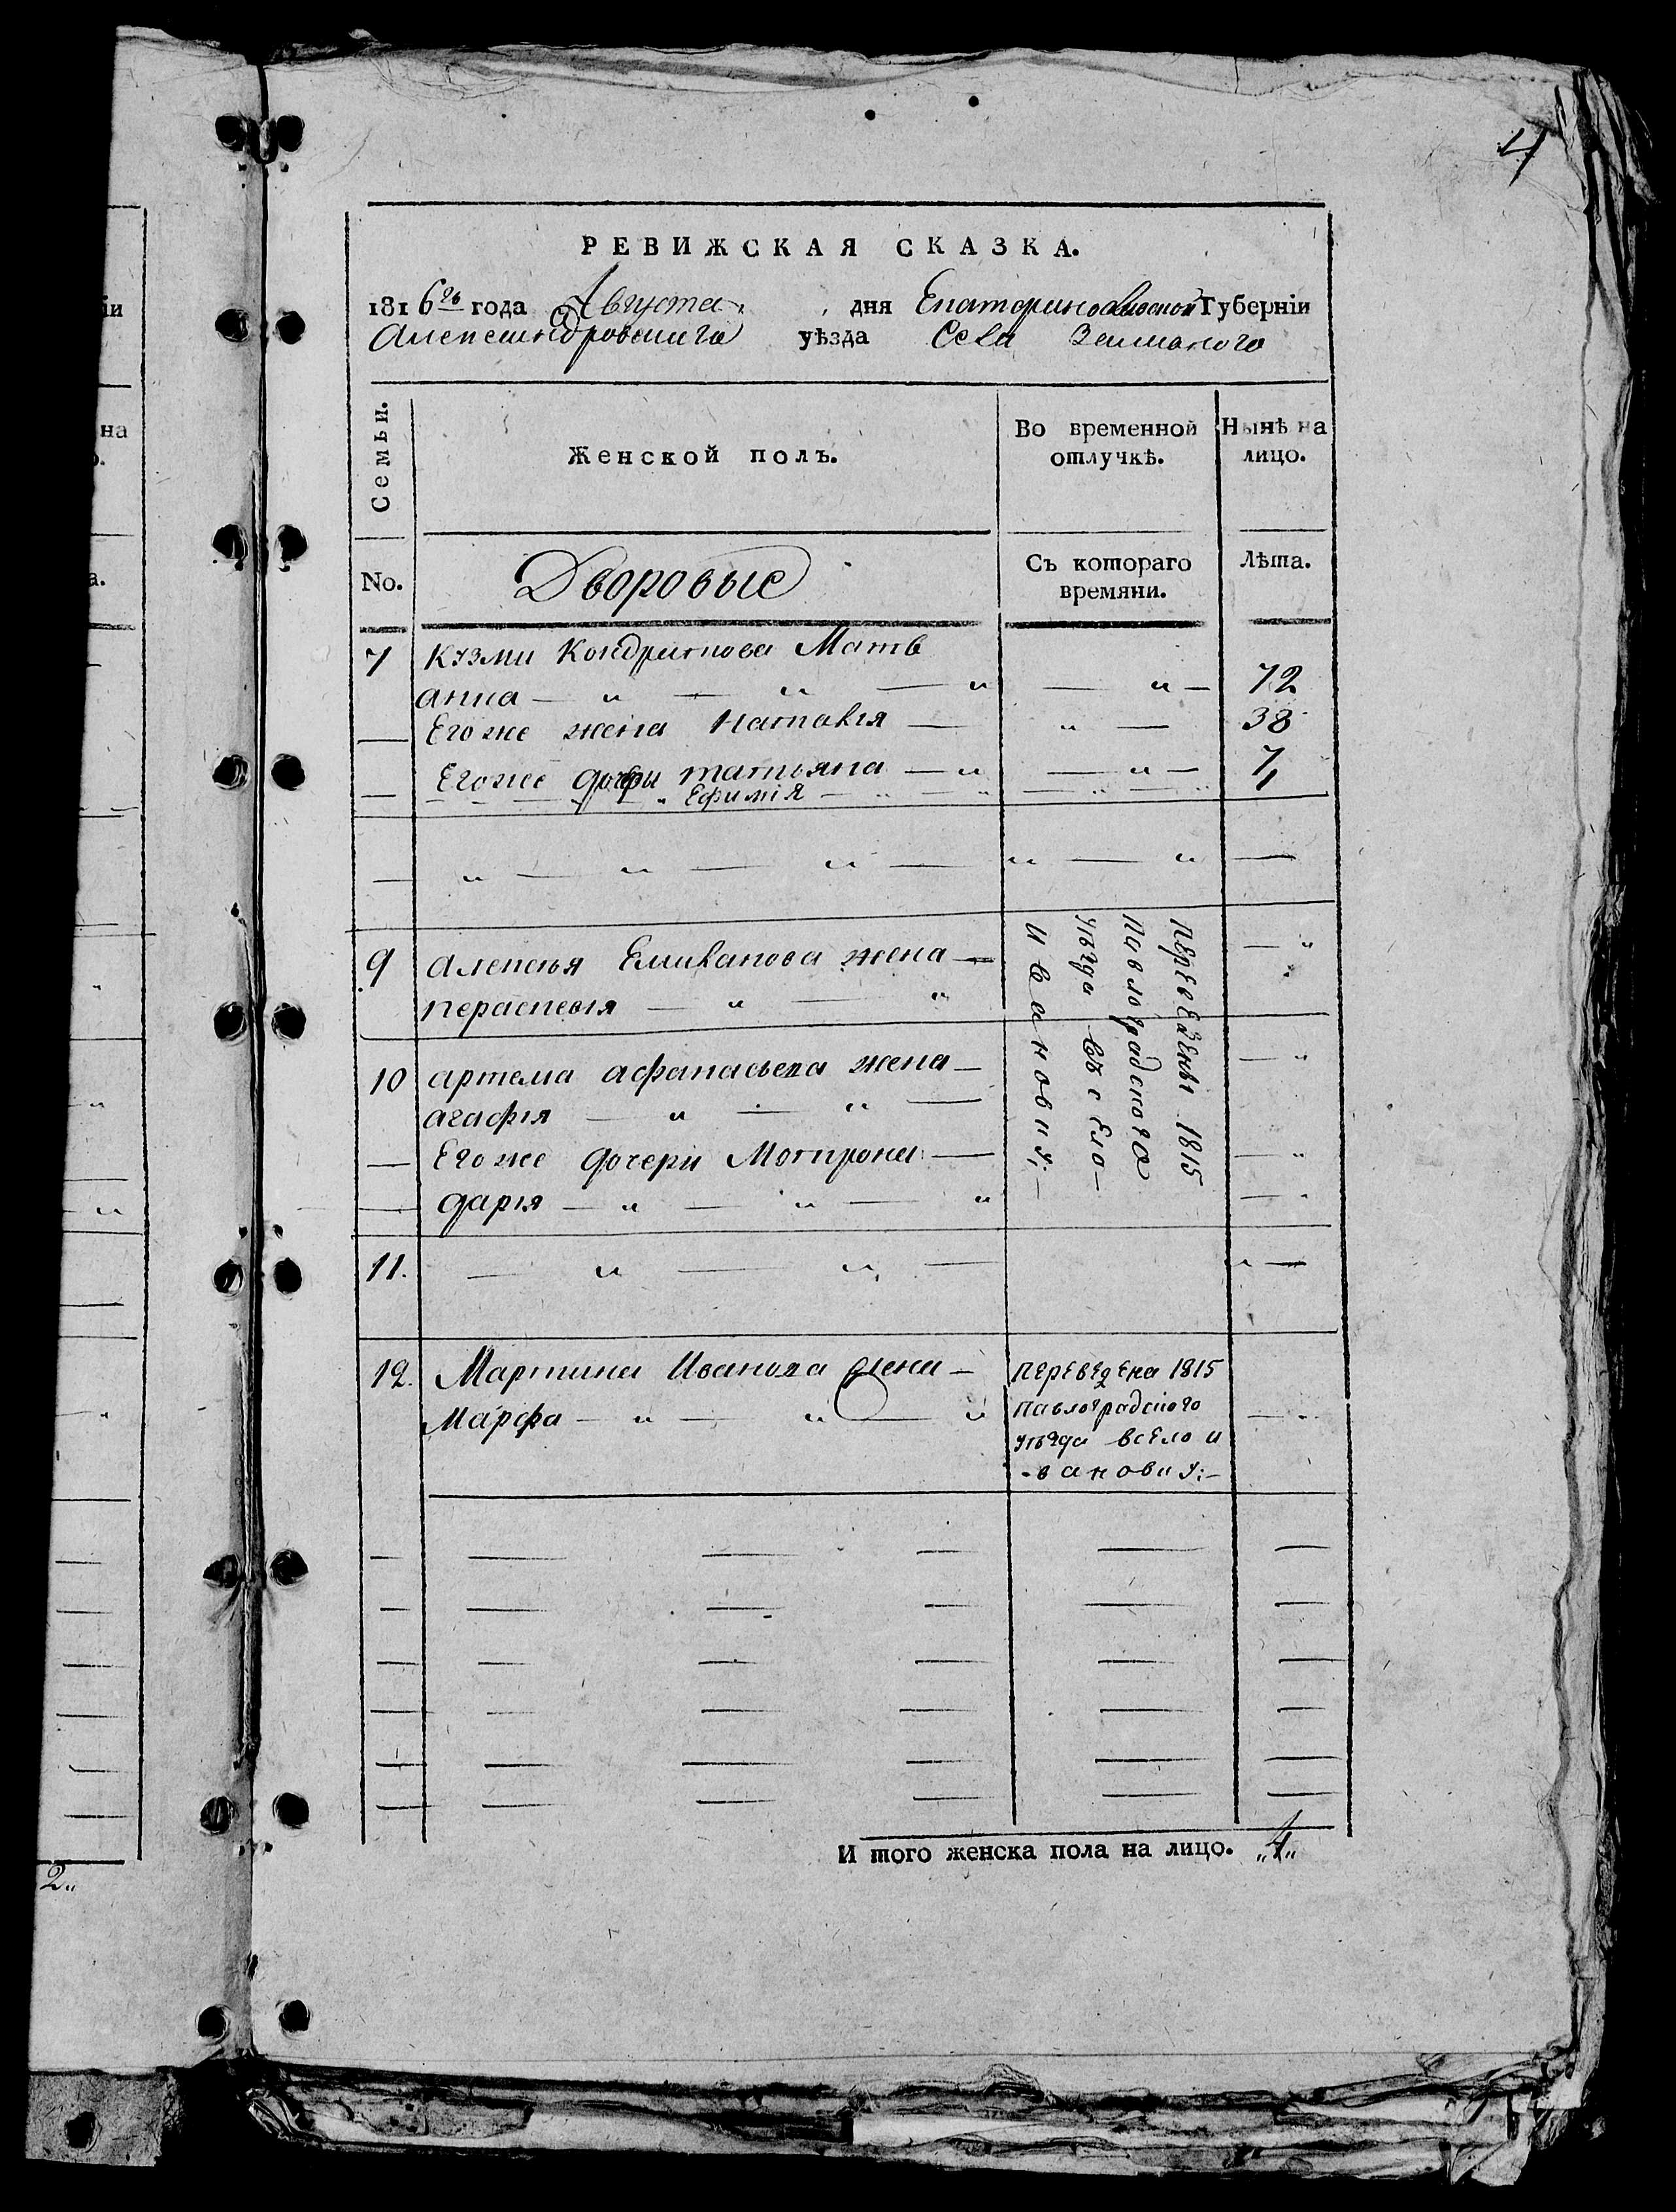 4
РЕВИЖСКАЯ СКАЗКА.
1816го года Августа дня Екатеринославской Губерніи
Александровскаго уѣзда Села
Семьи.
Женской полъ.
Во временной отлучкѣ.
Нынѣ на лицо.
No.
Дворовые
Съ котораго времяни.
Лѣта.
7 Кузми Кондратова Матъ
анна — „ — „ — „ — „ — 72
— Его же жена Наталія — „ — 38
— Его же дочери татьяна — „ — „ — 7
— Ефимія — „ — „ — „ — „ 1
— „ — „ — „ — „ — „ —
9 Алексѣя Емиланова жена — — „
пераскевія — „ — „
10 артема афанасьева жена — — „
агафія — „ — „ —
— Его же дочери Мотрона — — „
— дарія — „ — „ — „ — „
переведены 1815
Павлоградского
уѣзда въ село —
Ивановку;—
11. — „ — „ — „ —
12. Мартина Иванова жена — переведена 1815
Марфа — „ — „ — „ Павлоградского — „
уѣзда всело и
-вановку;—
И того женска пола на лицо. „4„
іи
на
о.
а.
2„